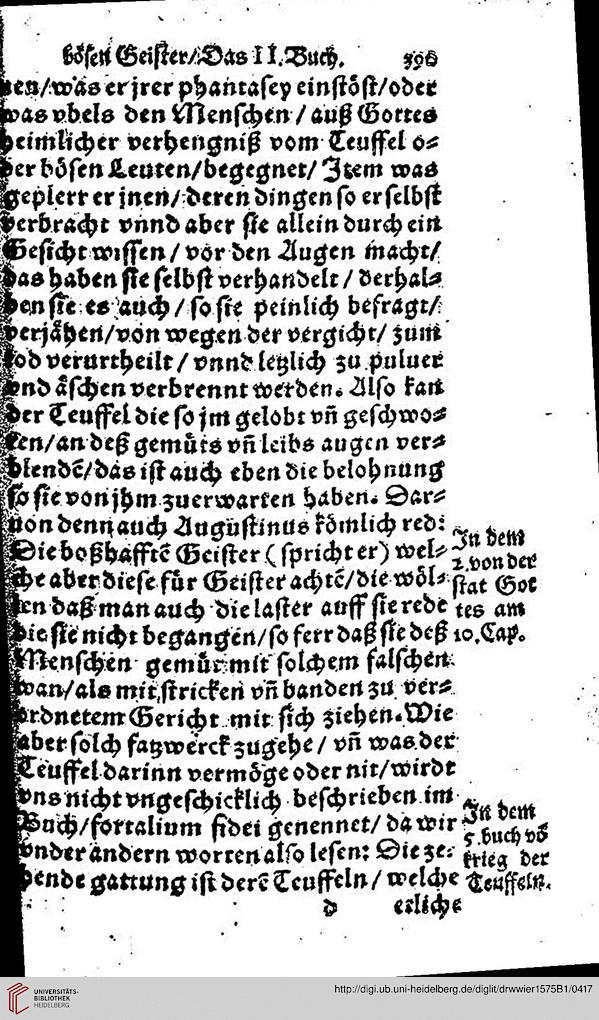 bösen Geister/Das II. Buch. 396
nen/was er jrer phantasey einstöst/oder
was vbels den Menschen / auß Gottes
heimlicher verhengniß vom Teuffel o⸗
der bösen Leuten/begegnet/ Item was
geplerr er jnen/ deren dingen so er selbst
verbracht vnnd aber sie allein durch ein
Gesicht wissen / vor den Augen macht/
das haben sie selbst verhandelt / derhal⸗
ben sie es auch / so sie peinlich befragt/
verjähen/von wegen der vergicht/ zum
tod verurtheilt / vnnd letzlich zu puluer
vnd äschen verbrennt werden. Also kan
der Teuffel die so jm gelobt vñ geschwo⸗
ren/an deß gemüts vñ leibs augen ver⸗
blendē/das ist auch eben die belohnung
so sie von jhm zuerwarten haben. Dar⸗
uon denn auch Augustinus kömlich red:
Die boßhafftē Geister ( spricht er) wel⸗
che aber diese für Geister achtē/die wöl⸗
len daß man auch die laster auff sie rede
die sie nicht begangen/so ferr daß sie deß
Menschen gemüt mit solchem falschen
wan/als mit stricken vñ banden zu ver⸗
ordnetem Gericht mit sich ziehen. Wie
aber solch fatzwerck zugehe / vñ was der
Teuffel darinn vermöge oder nit/wirdt
vns nicht vngeschicklich beschrieben im
Buch/fortalium fidei genennet/ da wir
vnder andern worten also lesen: Die ze⸗
hende gattung ist derē Teuffeln / welche
d etliche
In dem
2. von der
stat Got
tes am
10. Cap.
In dem
5. buch vō
krieg der
Teuffeln.
UNIVERSITÄTS-
BIBLIOTHEK
HEIDELBERG
http://digi.ub.uni-heidelberg.de/diglit/drwwier1575B1/0417